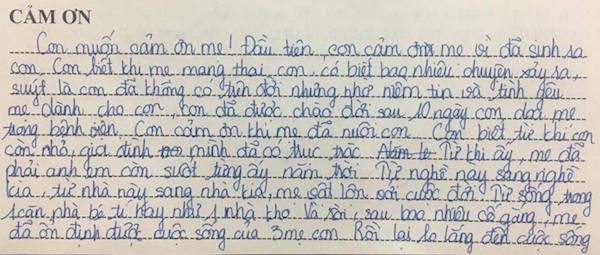 CẢM ƠN
Con muốn cảm ơn mẹ! Đầu tiên, con cảm ơn mẹ vì đã sinh ra
con. Con biết khi mẹ mang thai con, có biết bao nhiêu chuyện xảy ra,
suýt là con đã không có trên đời nhưng nhờ niềm tin và tình yêu
mẹ dành cho con, con đã được chào đời sau 10 ngày con dọa mẹ
trong bệnh viện. Con cảm ơn khi mẹ đã nuôi con. Con biết, từ khi con
còn nhỏ, gia đình mình đã có trục trặc. Từ khi ấy, mẹ đã
phải anh em con suốt từng ấy năm trời. Từ nghề này sang nghề
kia, từ nhà này sang nhà kia, mẹ vật lộn với cuộc đời. Từ sống trong
1 căn nhà bé tí hay như 1 nhà kho. Và rồi, sau bao nhiêu cố gắng, mẹ
đã ổn định được cuộc sống của 3 mẹ con. Rồi lại lo lắng đến cuộc sống